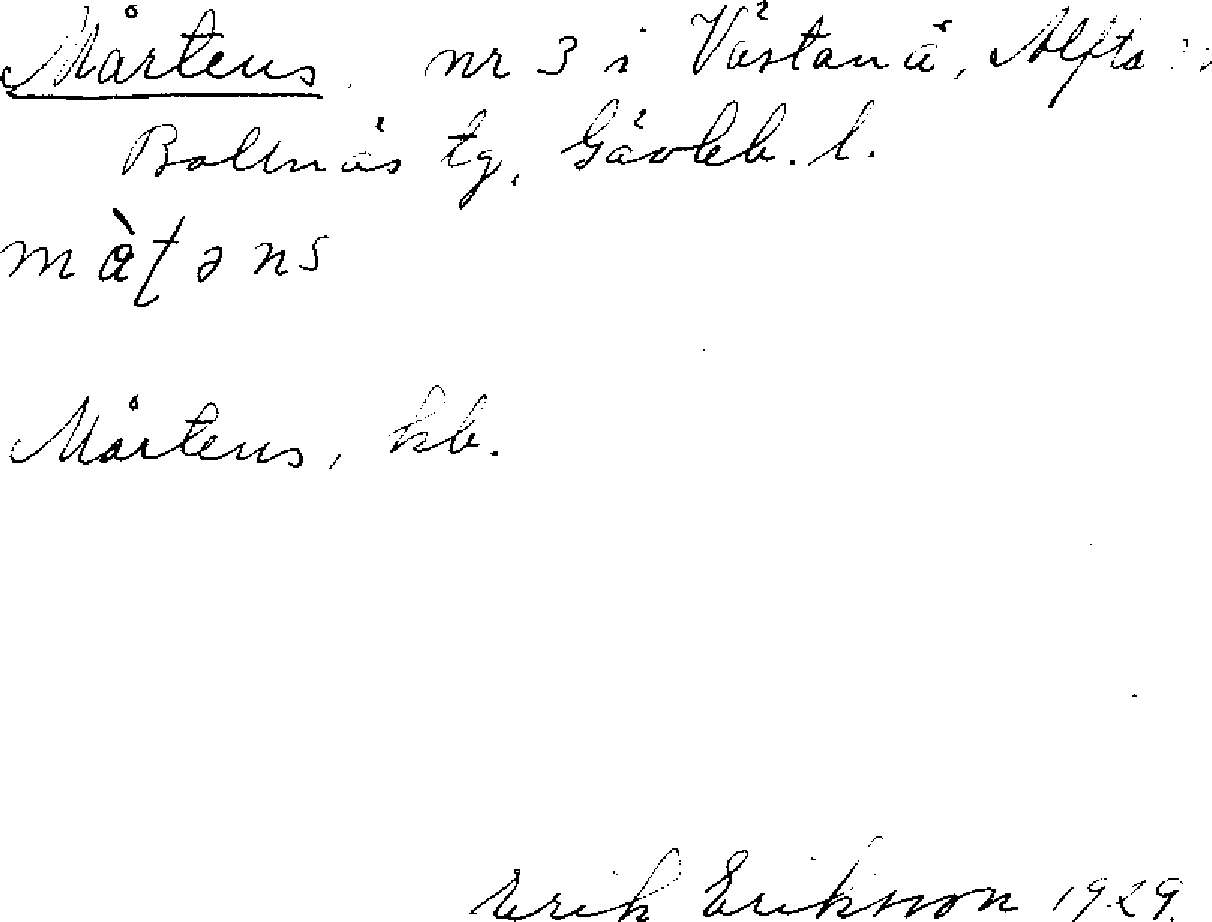 Mårtens, nr 3 i Västanå, Alfta
Bollnäs tg, Gävleb. l.
Mårtens, kb.
Erik Eriksson 1929.